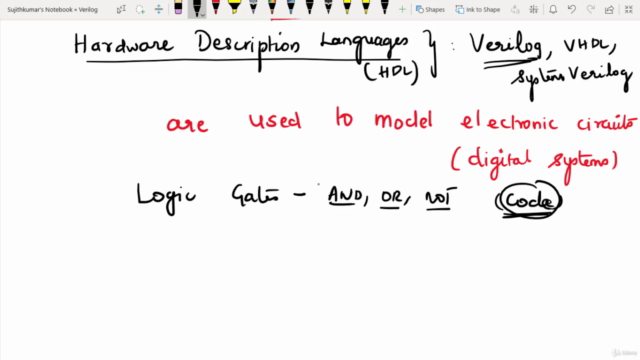 Sujithkumar's Notebook » Verilog
To Shapes
Ink to Shape
Hardware Description Languages (HDL) } : Verilog, VHDL,
System Verilog
are used to model electronic circuits
(digital systems)
Logic Gates - AND, OR, NOT Code